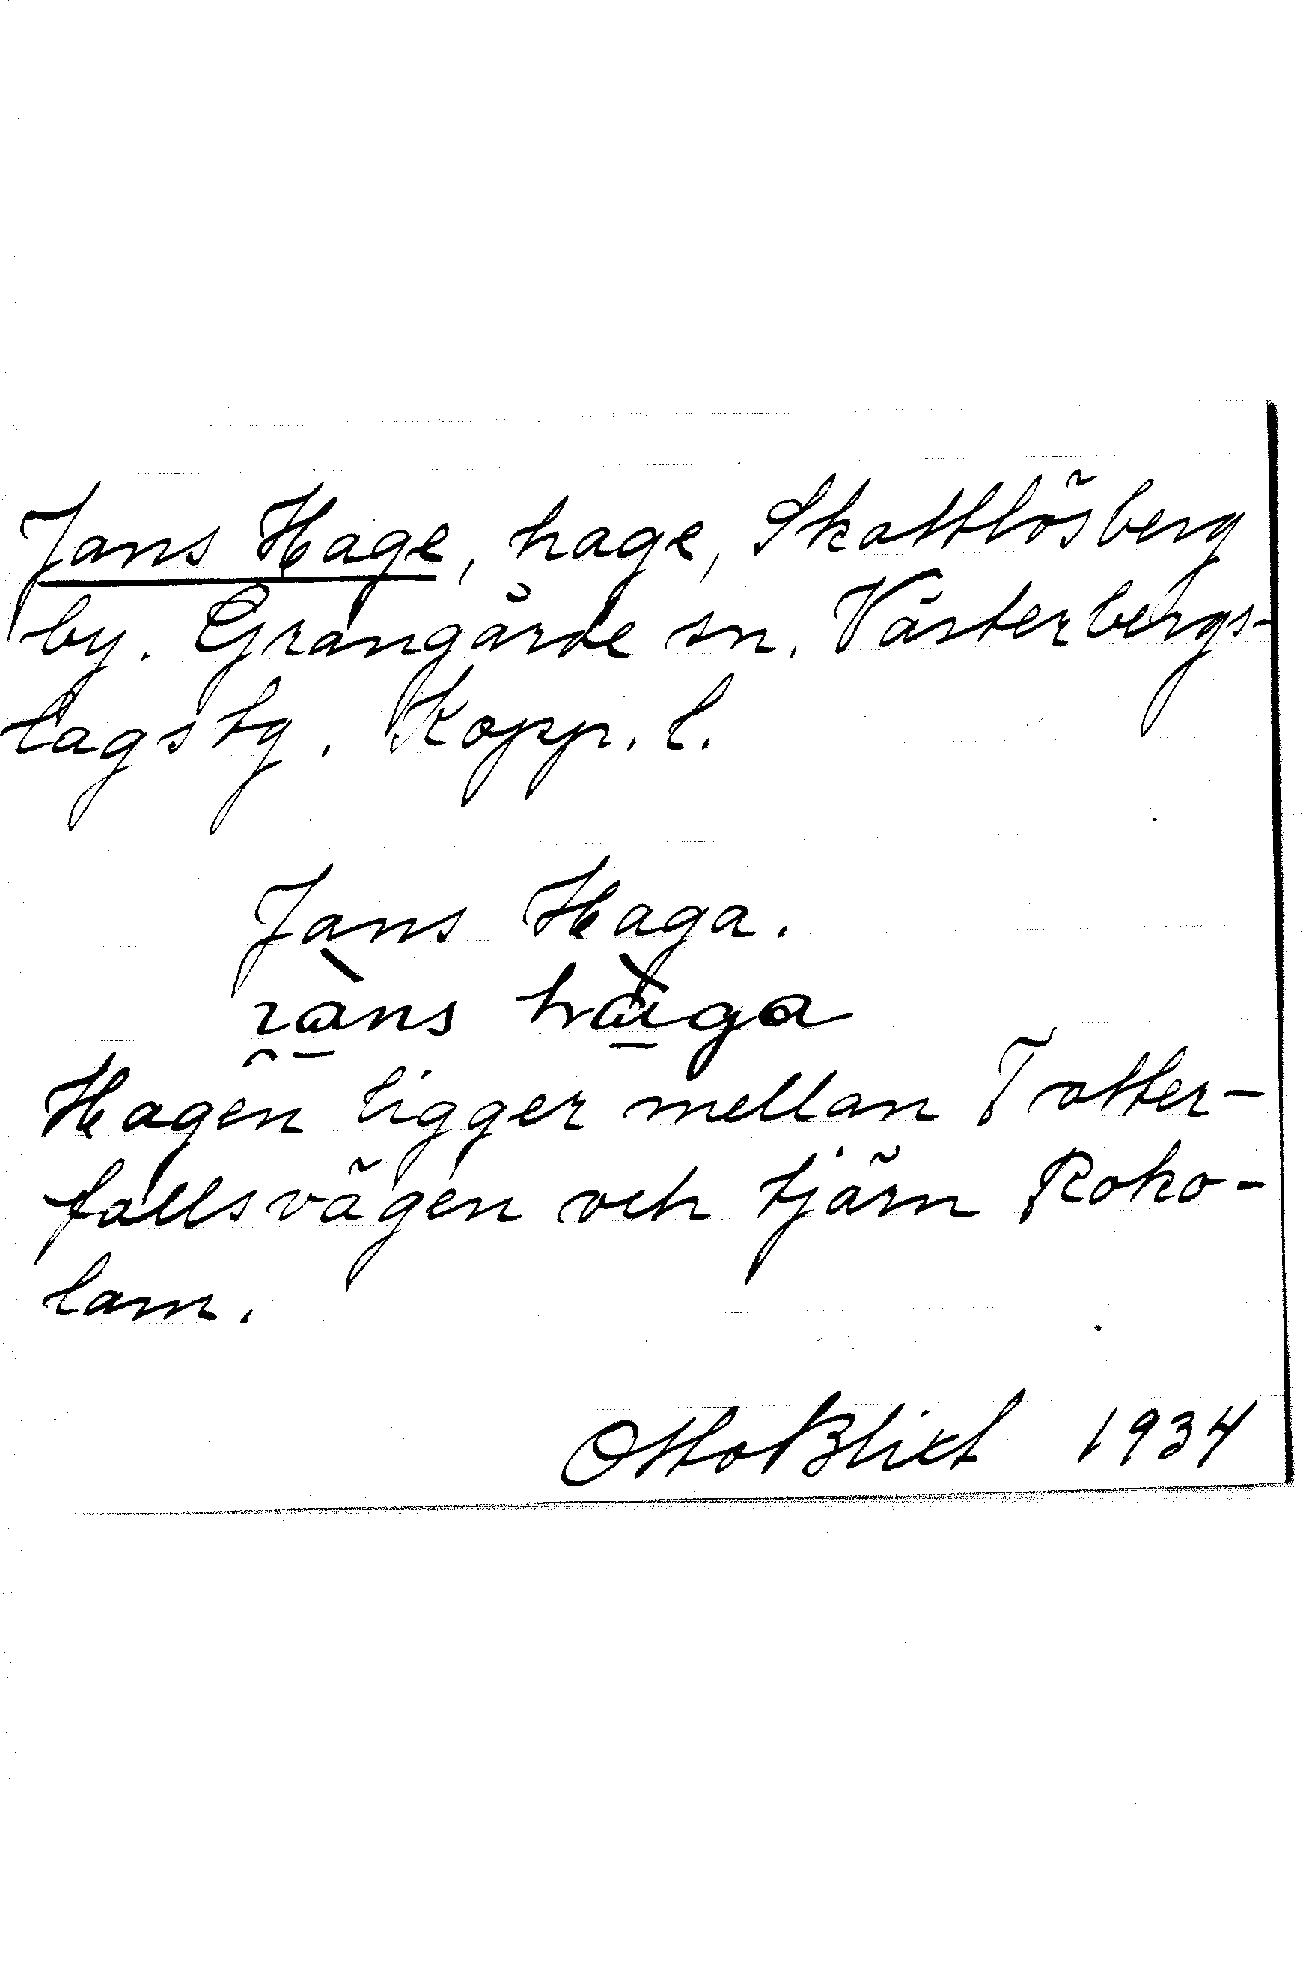 Jans Hage, hage, Skattlösberg
by. Grangärde sn. Västerbergs-
lags tg. Kopp. l.
Jans Haga.
hàga
Hagen ligger mellan Totter-
fallsvägen och tjärn Roko-
lam.
Otto Blixt 1934